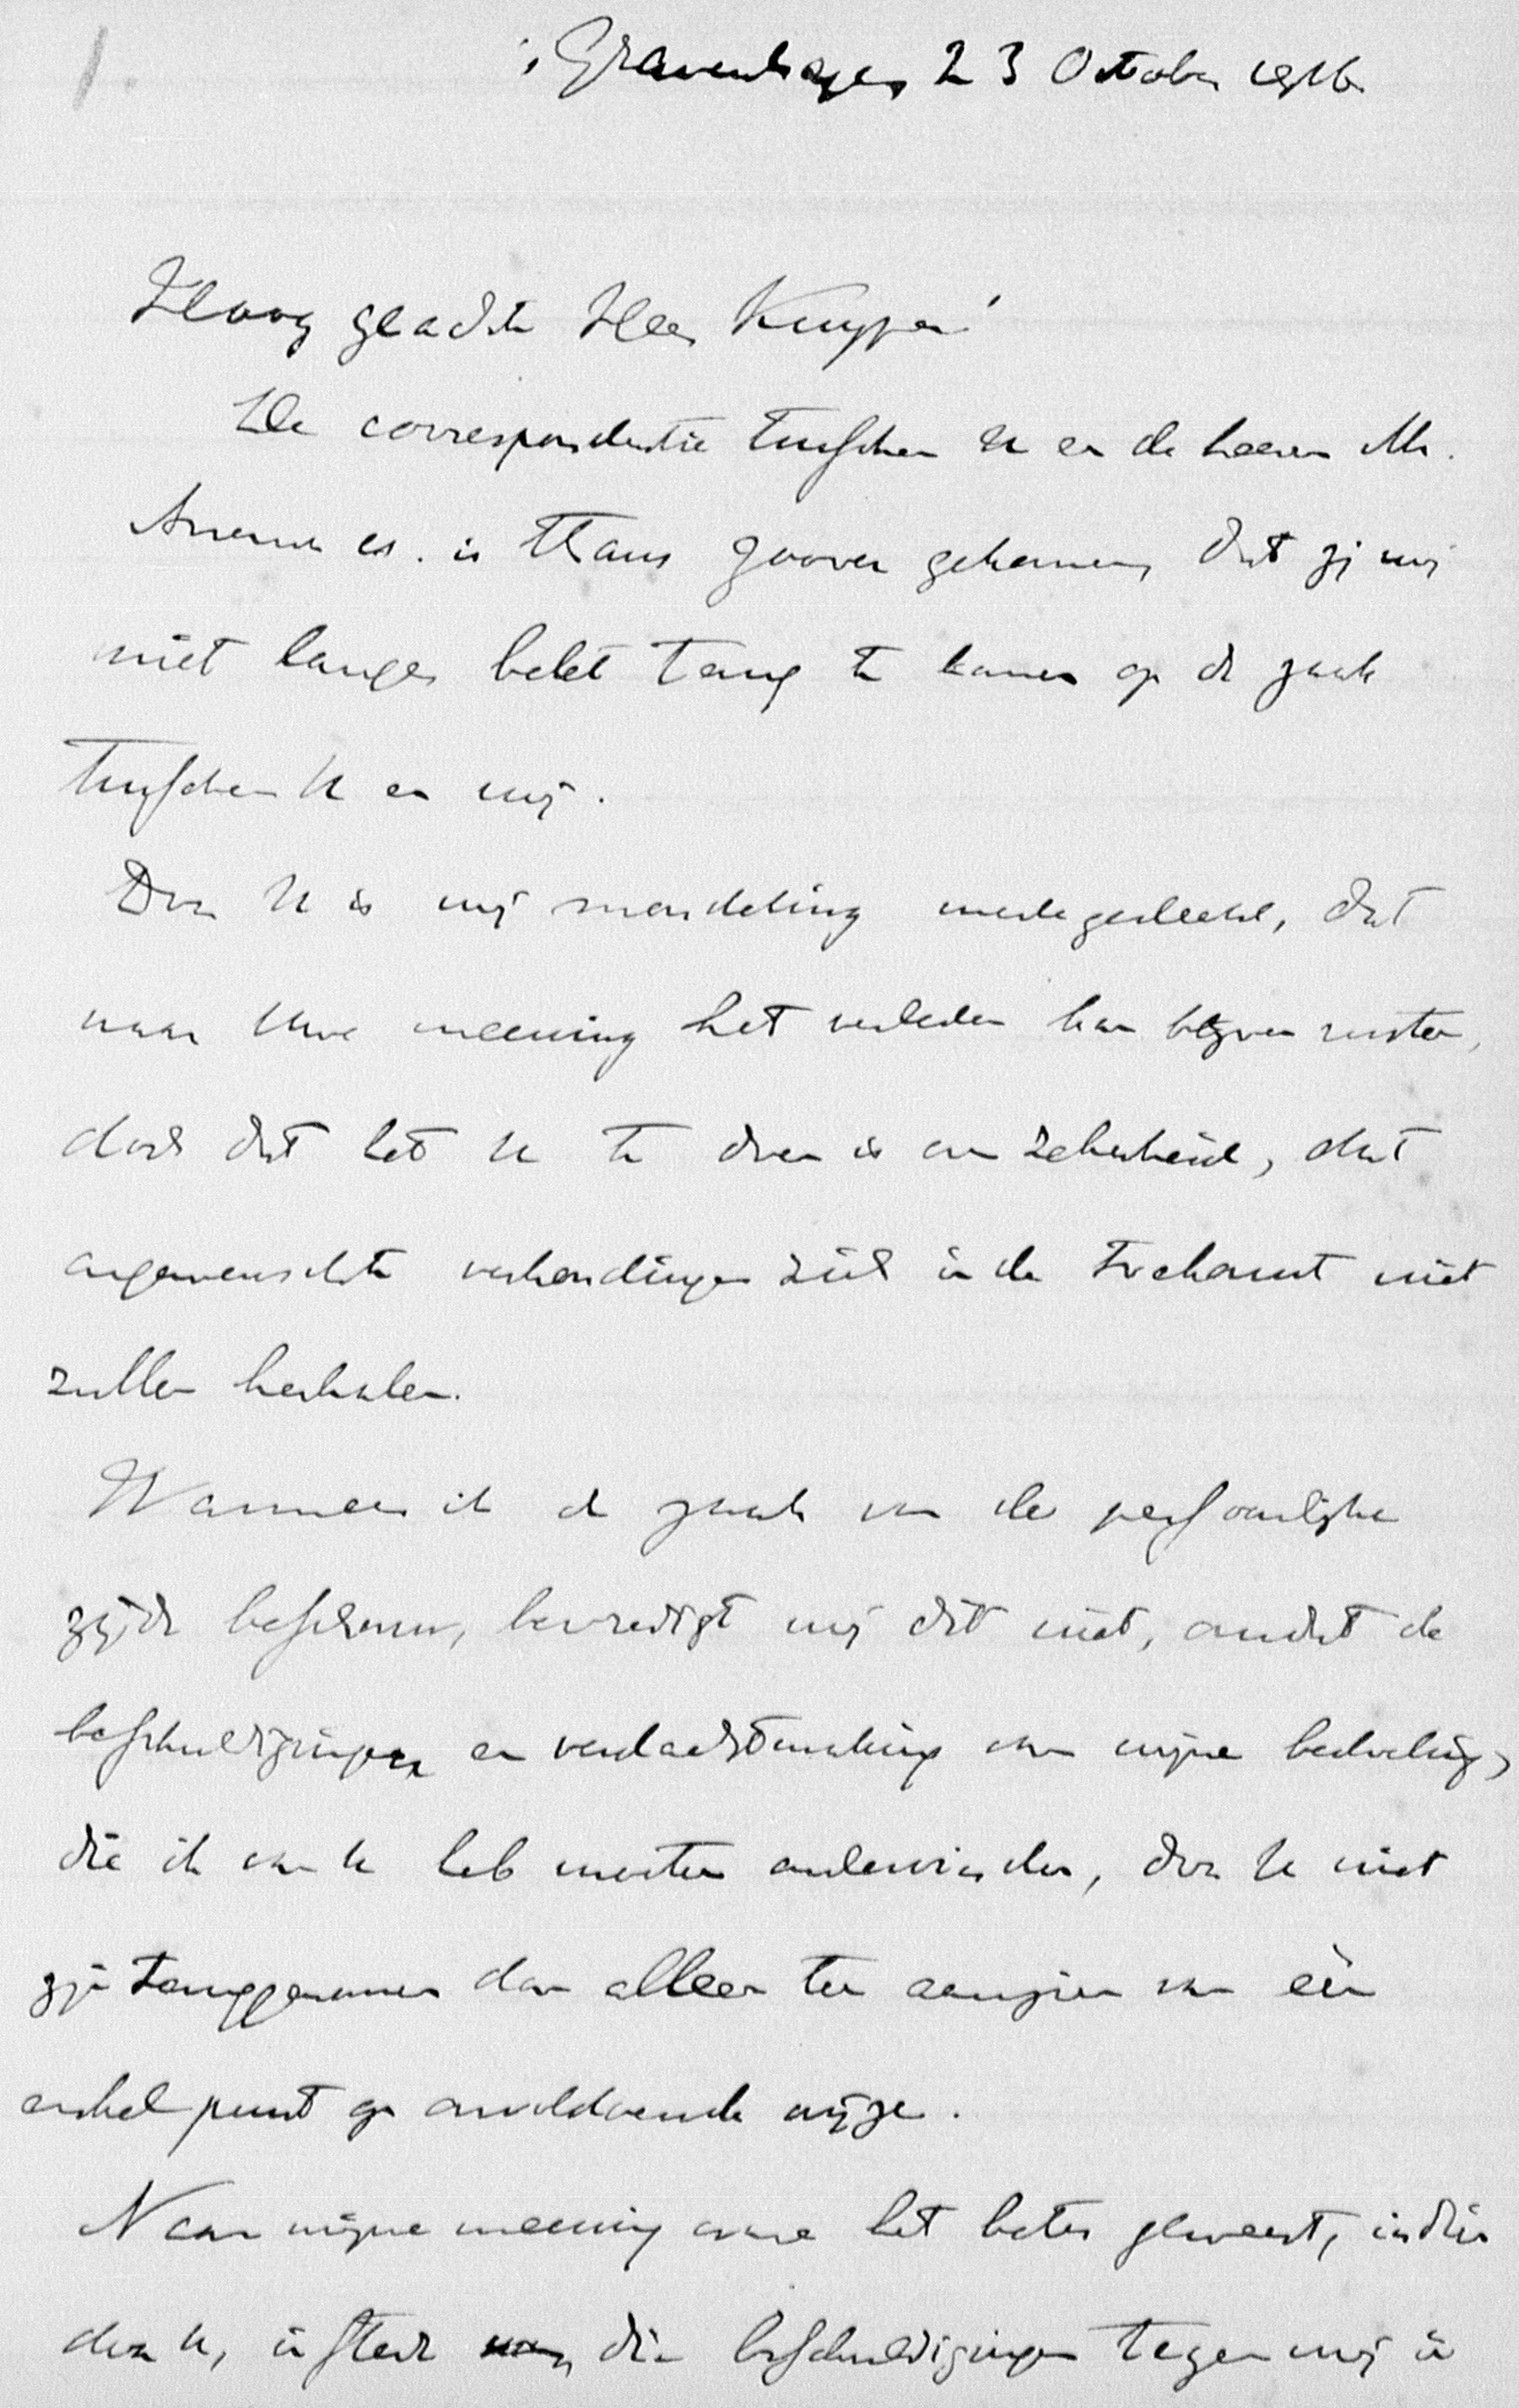 's Gravenhage, 23 October 1916
Hoog geachte Heer Kuyper!
De correspondentie tusschen U en de heeren Mr.
Anema cs. is thans zoover gekomen, dat zij mij
niet langer belet terug te komen op de zaak
tusschen U en mij.
Door U is mij mondeling medegedeeld, dat
naar Uwe meening het verleden kan blijven rusten,
doch dat het U te doen is om zekerheid, dat
ongewenschte verhoudingen zich in de toekomst niet
zullen herhalen.
Wanneer ik de zaak van de persoonlijke
zijde beschouw, bevredigt mij dit niet, omdat de
beschuldigingen en verdachtmaking van mijne bedoeling,
die ik van U heb moeten ondervinden, door U niet
zijn teruggenomen dan alleen ten aanzien van één
enkel punt op onvoldoende wijze.
Naar mijne meening ware het beter geweest, indien
door U, in stede van die beschuldigingen tegen mij in